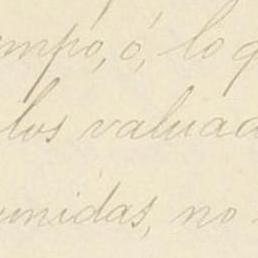 mpo, ó, lo q
los valuad
unidas, no